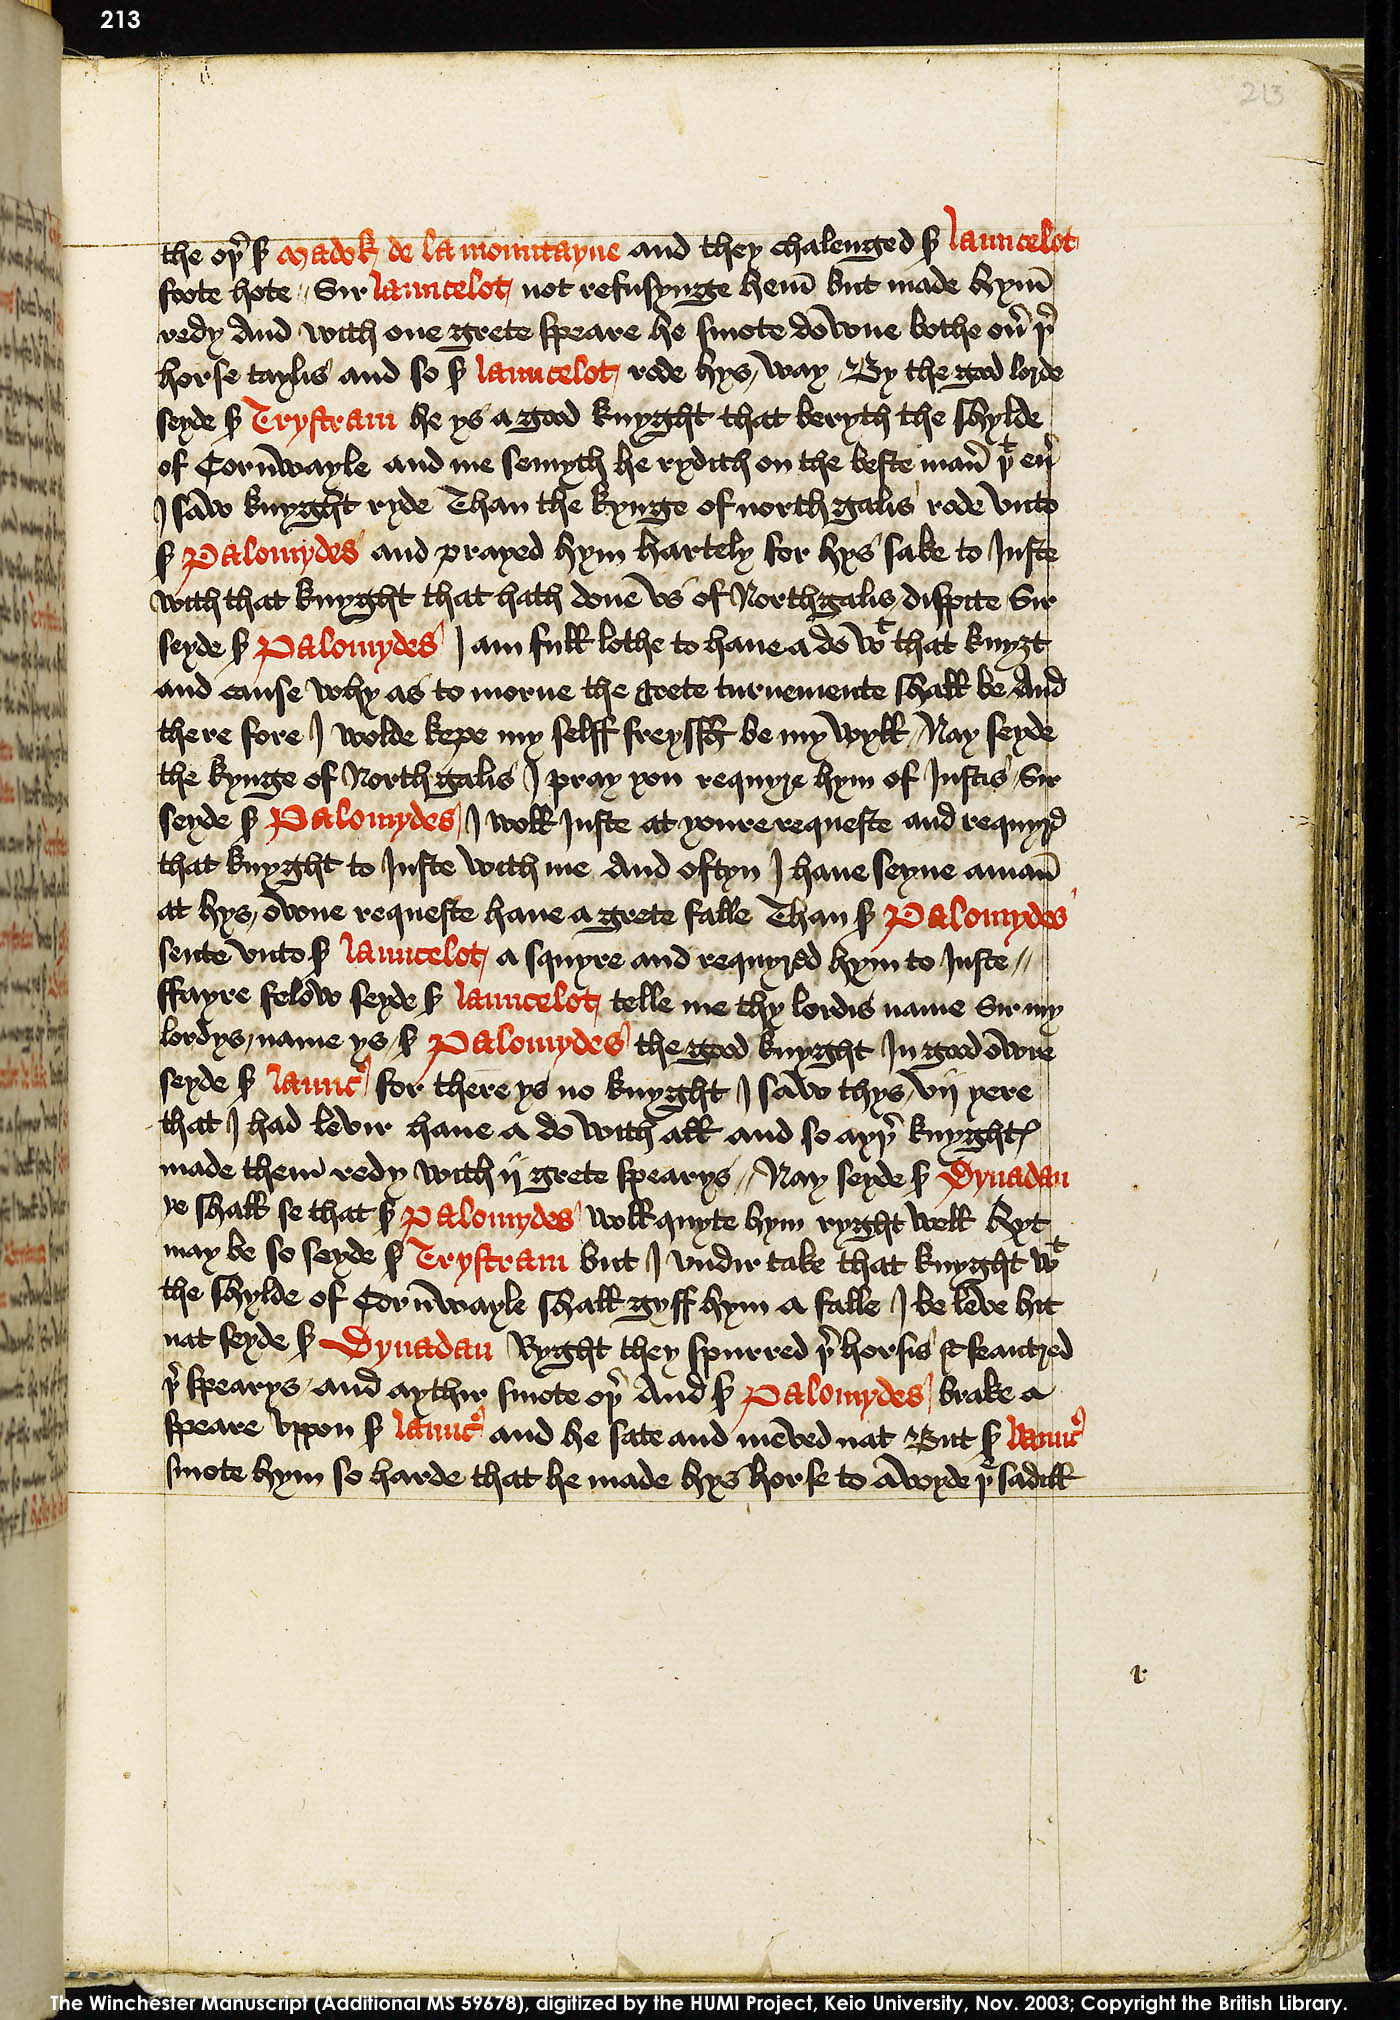 213
213
the oþ̉ ẜ Madok de la mountayne and they chalenged ẜ launcelot
foote hote // Sir launcelot not refusynge hem̄ but made hym̄
redy And with one grete speare he smote downe bothe oũ þ̉
horse taylis and so ẜ launcelot rode hys way By the good lorde
seyde ẜ Trystram he ys a good knyght that beryth the shylde
of Cornwayle and me semyth he rydith on the beste man̄ þͭ eũ
I saw knyght ryde Than the kynge of north galis rode vnto
ẜ Palomydes and prayed hym hartely for hys sake to Juste
with that knyght that hath done vs of Northgalis dispite Sir
seyde ẜ Palomydes I am full lothe to haue a do wͭ that knyȝt
and cause why as to morne the grete turnemente shall be And
there fore I wolde kepe my selff freyssh be my wyll / Nay seyde
the kynge of North galis I pray you requyre hym of Justis Sir
seyde ẜ Palomydes I woll Juste at youre requeste and requyrd
that knyght to Juste with me And oftyn I haue seyne a man̄
at hys owne requeste haue a grete falle Than ẜ Palomydes
sente vnto ẜ launcelot a squyre and requyred hym to Juste //
ffayre felow seyde ẜ launcelot telle me thy lordis name Sir my
lordys name ys ẜ Palomydes the good knyght In good owre
seyde ẜ launcꝰ for there ys no knyght I saw thys vij yere
that I had levir haue a do with all and so ayþ̉ knyghtꝭ
made them redy with ij grete spearys // Nay seyde ẜ Dynadan
ye shall se that ẜ Palomydes woll quyte hym ryght well Hyt
may be so seyde ẜ Trystram but I vndir take that knyght wͭ
the shylde of Cornwayle shall gyff hym a falle I be leve hit
nat seyde ẜ Dynadan Ryght they spurred þ̉ horsis & feautred
þ̉ spearys and aythir smote oþ̉ And ẜ Palomydes brake a
speare vppon ẜ launcꝰ and he sate and meved nat But ẜ launcꝰ
smote hym so harde that he made hys horse to avoyde þͤ sadill
r
The Winchester Manuscript (Additional MS 59678), digitized by the HUMI Project, Keio University, Nov. 2003; Copyright the British Library.